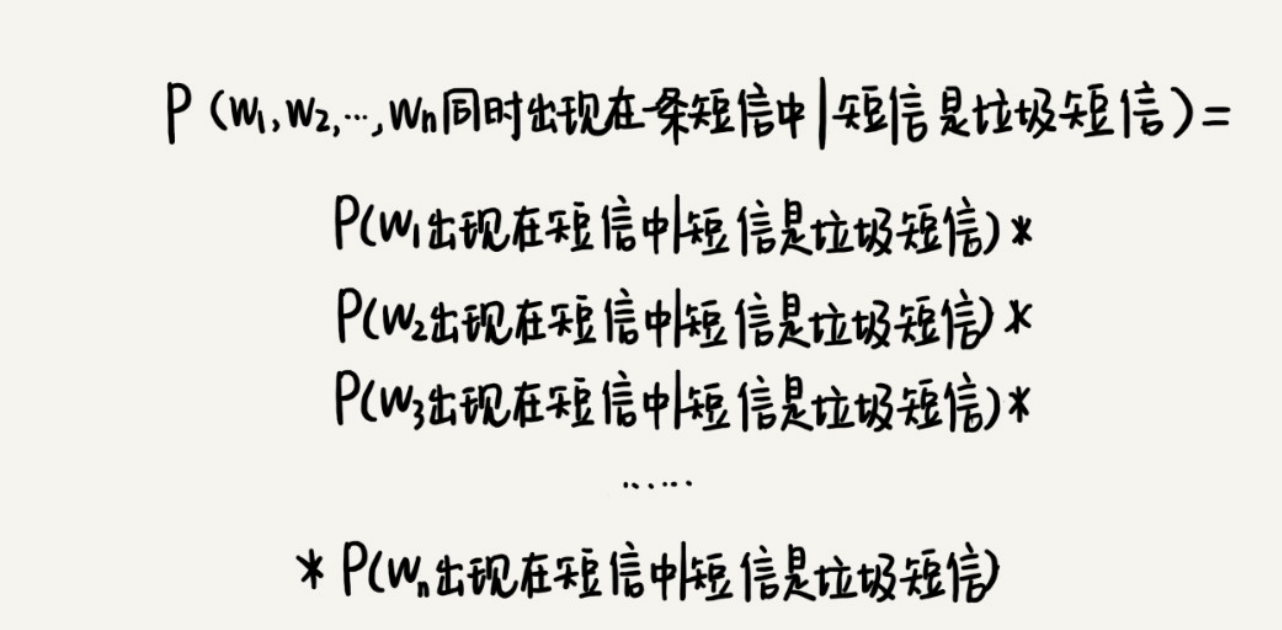 P(W₁,W₂,…,Wn同时出现在一条短信中|短信是垃圾短信)=
P(W₁出现在短信中|短信是垃圾短信)*
P(W₂出现在短信中|短信是垃圾短信)*
P(W₃出现在短信中|短信是垃圾短信)*
……
* P(Wₙ出现在短信中|短信是垃圾短信)